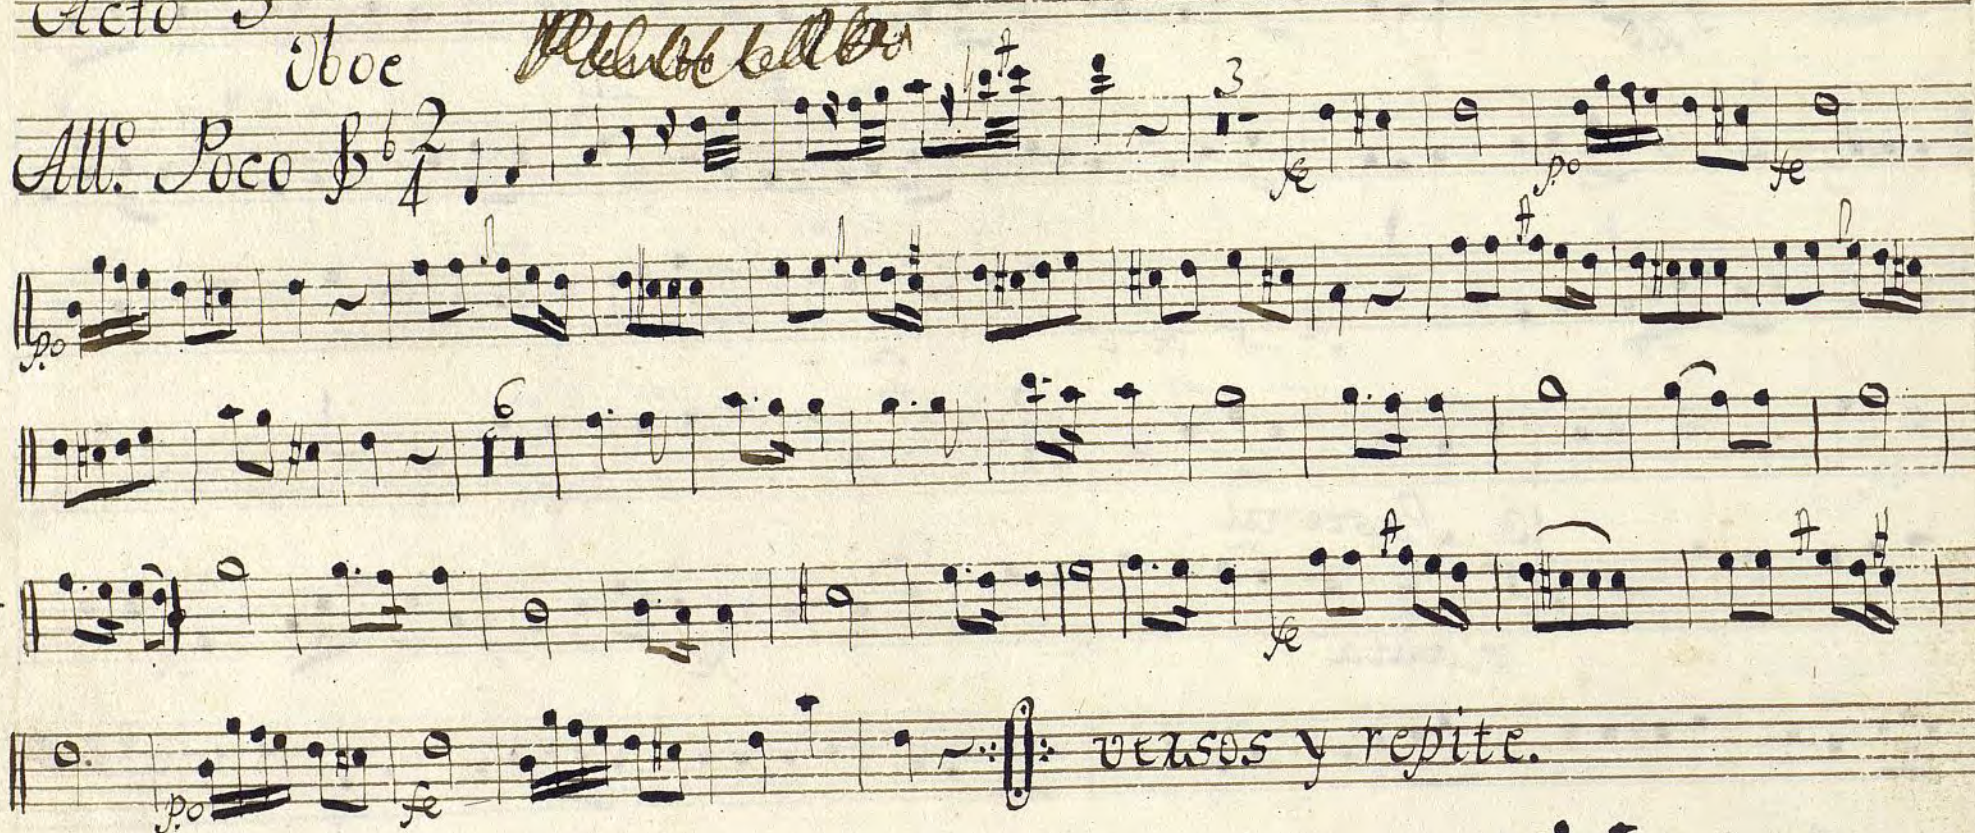 Acto 3
Oboe
All.º Poco 2 4
3
fe po fe
po
6
fe
po fe versos y repite.